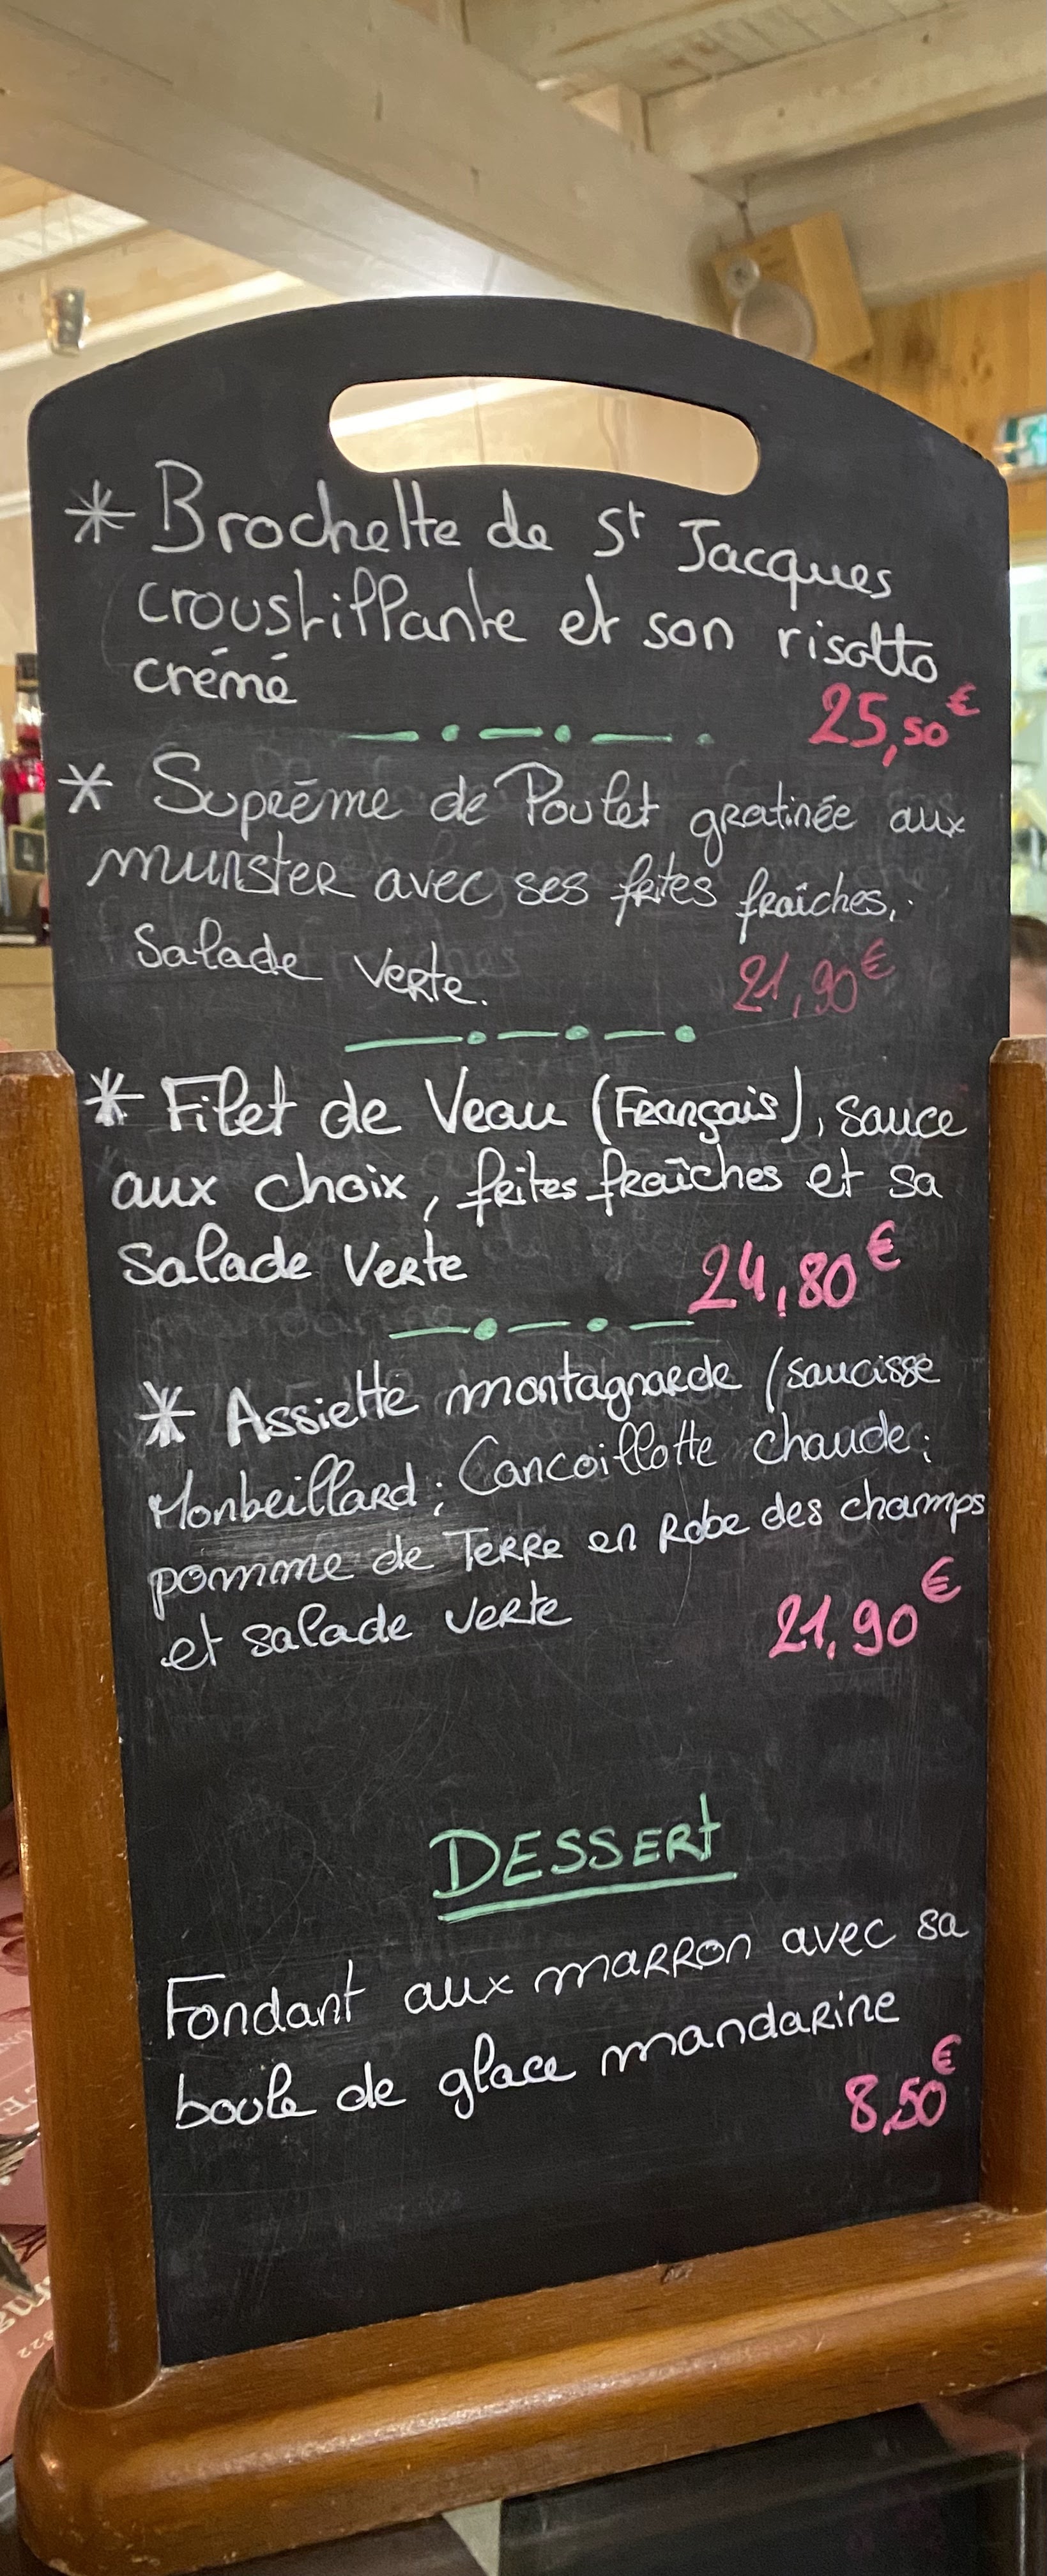 * Brochette de St Jacques
croustiffante et son risotto
crémé
25,50€
* Suprême de Poulet gratinée aux
munster avec ses frites fraîches,
Salade verte.
21,90€
* Filet de Veau (Français), sauce
aux choix, frites fraîches et sa
Salade Verte
24,80€
* Assiette montagnarde (saucisse
Monbeillard; Cancoillotte chaude;
pomme de Terre en Robe des champs
et salade verte
21,90€
DESSERT
Fondant aux marron avec sa
boule de glace mandarine
8,50€